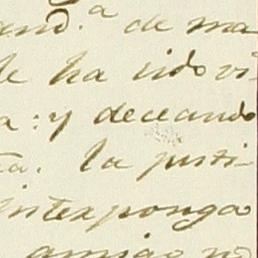 and.ª de ma
le ha sido vi-
a: y deceando
ta. la justi-
intexponga